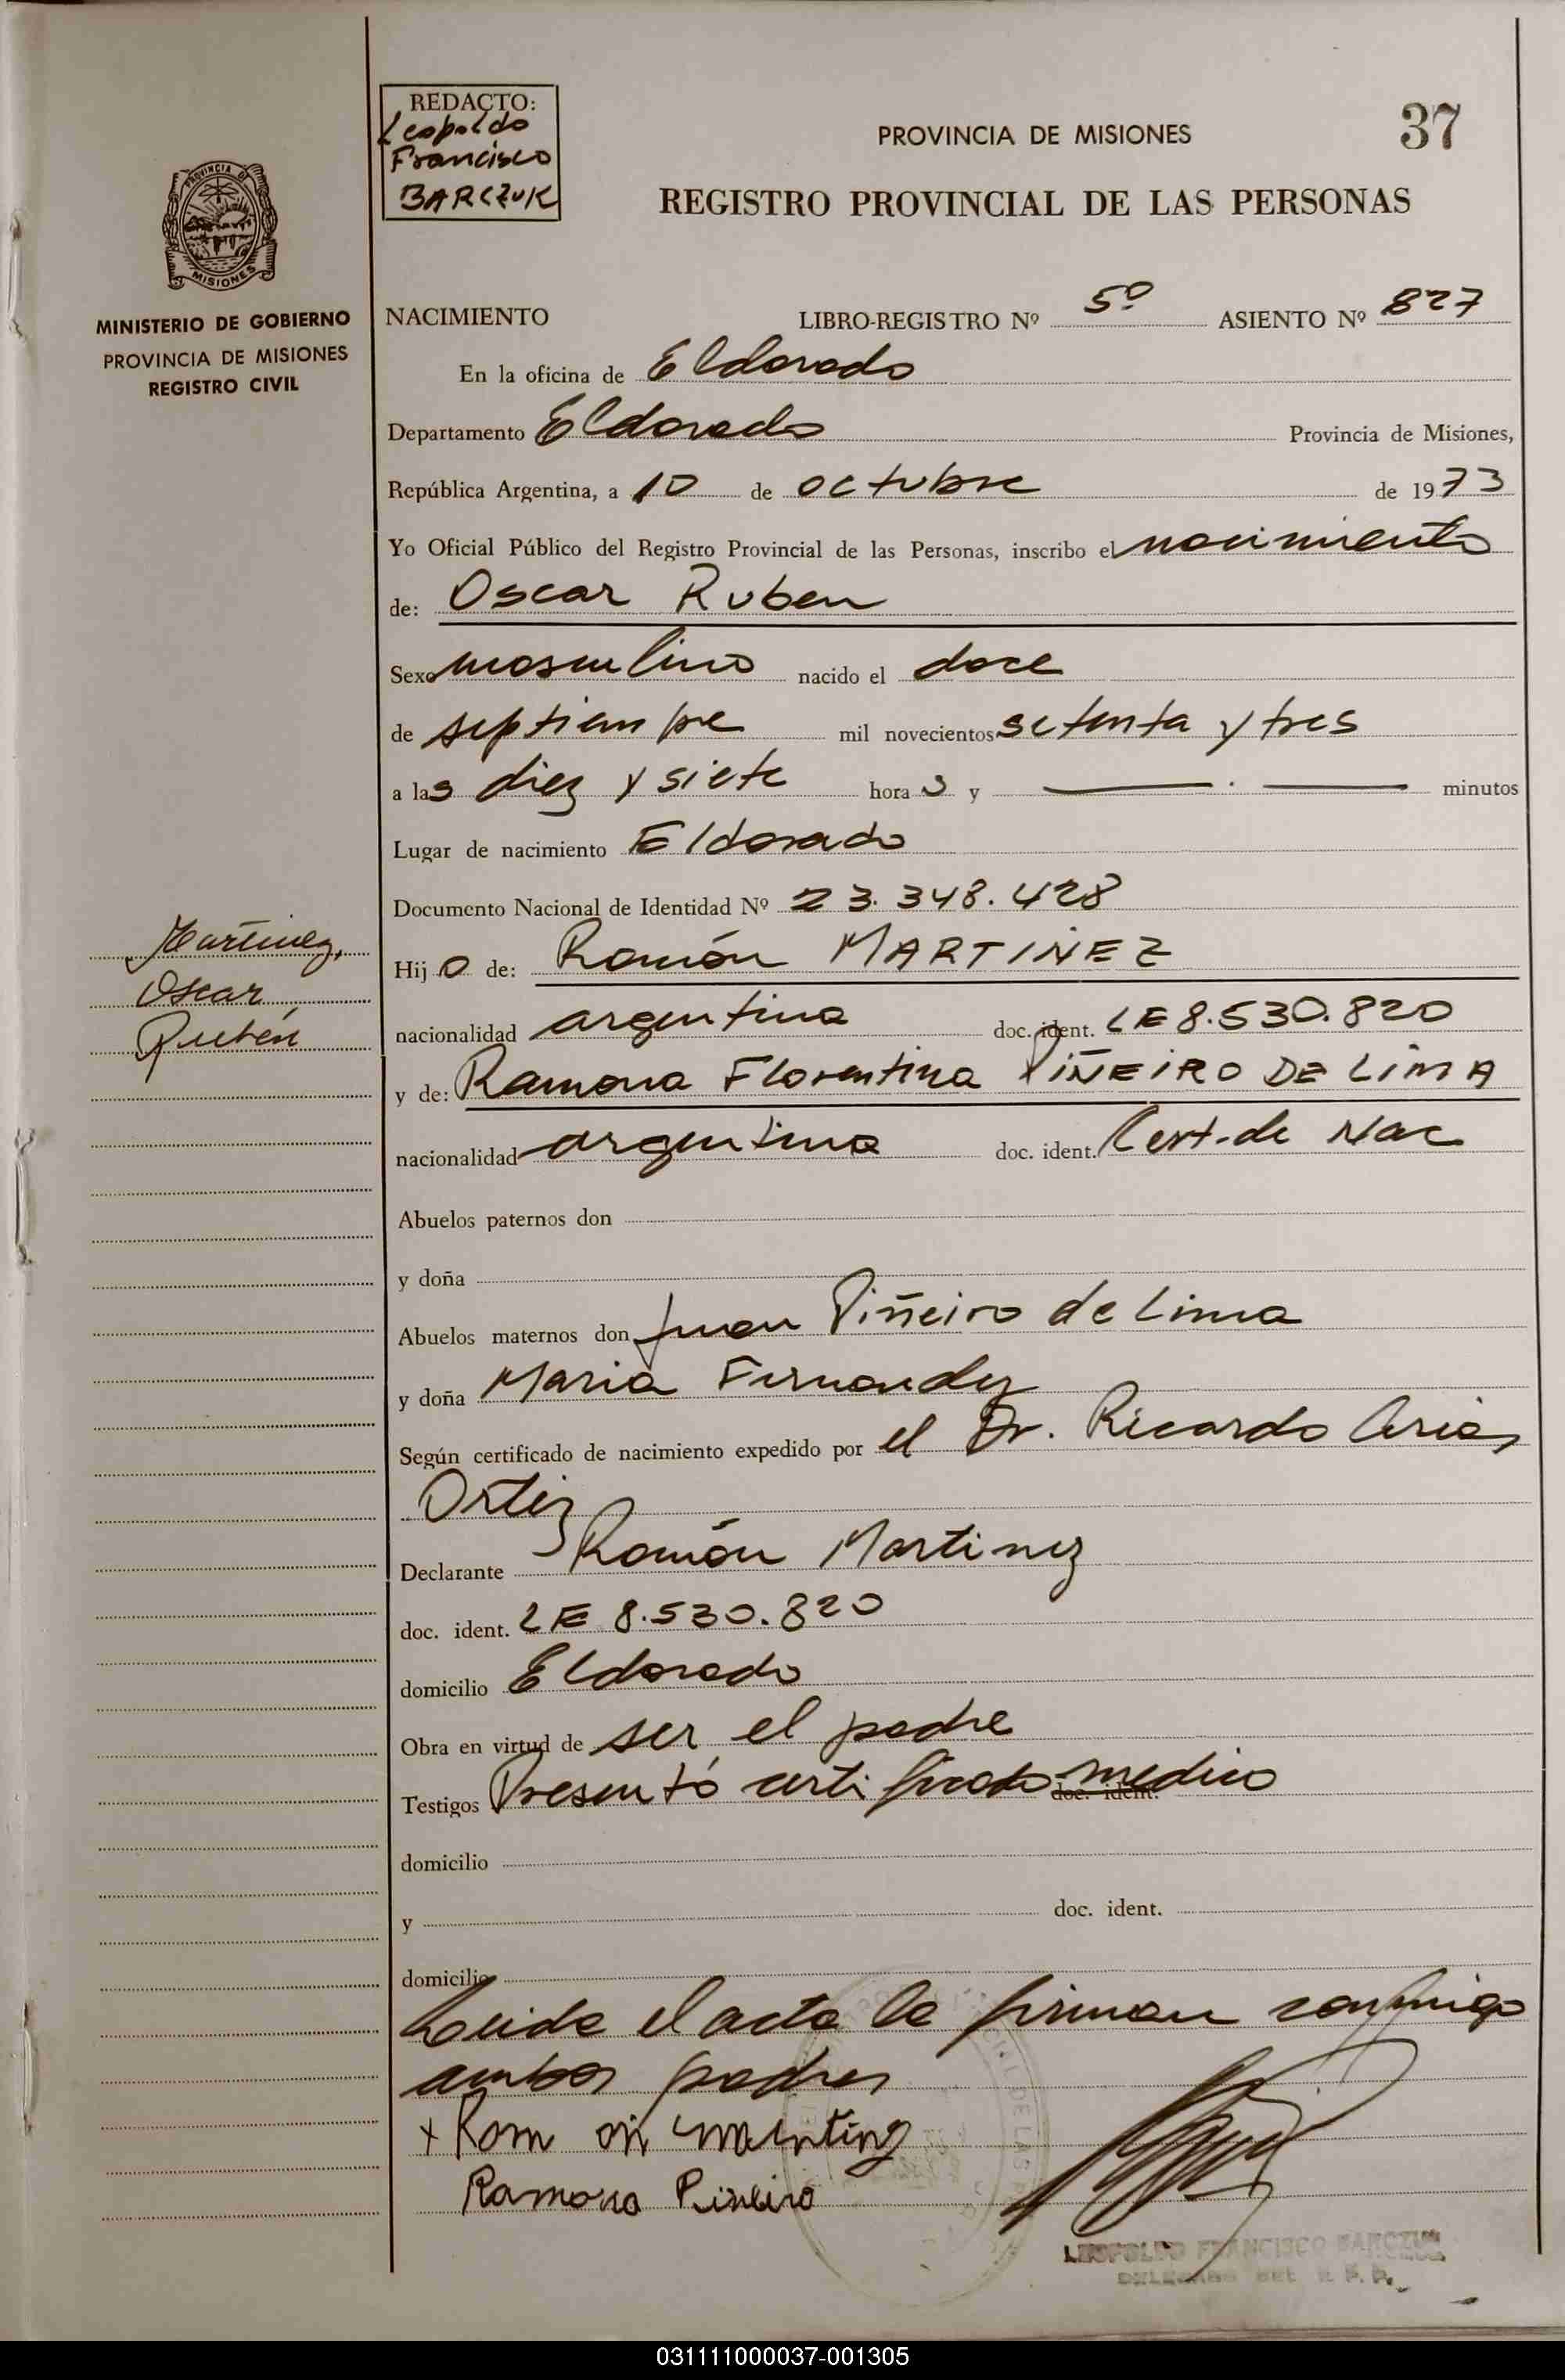 REDACTO:
Leopoldo
Francisco
BARCZUK
PROVINCIA DE MISIONES
37
REGISTRO PROVINCIAL DE LAS PERSONAS
PROVINCIA DE
MISIONES
MINISTERIO DE GOBIERNO
PROVINCIA DE MISIONES
REGISTRO CIVIL
NACIMIENTO LIBRO-REGISTRO Nº 5º ASIENTO Nº 827
En la oficina de Eldorado
Departamento Eldorado Provincia de Misiones,
República Argentina, a 10 de octubre de 1973
Yo Oficial Público del Registro Provincial de las Personas, inscribo el nacimiento
de: Oscar Ruben
Sexo masculino nacido el doce
de septiempre mil novecientos setenta y tres
a las diez y siete horas y — . — minutos
Lugar de nacimiento Eldorado
Documento Nacional de Identidad Nº 23.348.428
Martinez,
Oscar
Rubén
Hijo de: Ramón MARTINEZ
nacionalidad argentina doc. ident. LE 8.530.820
y de: Ramona Florentina PIÑEIRO DE LIMA
nacionalidad argentina doc. ident. Cert. de Nac
Abuelos paternos don
y doña
Abuelos maternos don Juan Piñeiro de Lima
y doña Maria Fernandez
Según certificado de nacimiento expedido por el Dr. Ricardo Arias
Ortiz
Declarante Ramón Martinez
doc. ident. LE 8.530.820
domicilio Eldorado
Obra en virtud de ser el padre
Testigos Presentó certificado medico doc. ident.
domicilio
y doc. ident.
domicilio
Leida el acta la firman conmigo
ambos padres
x Ram on martinz
Ramona Piñeiro
LEOPOLDO FRANCISCO BARCZUK
DELEGADO DEL R. P. P.
031111000037-001305